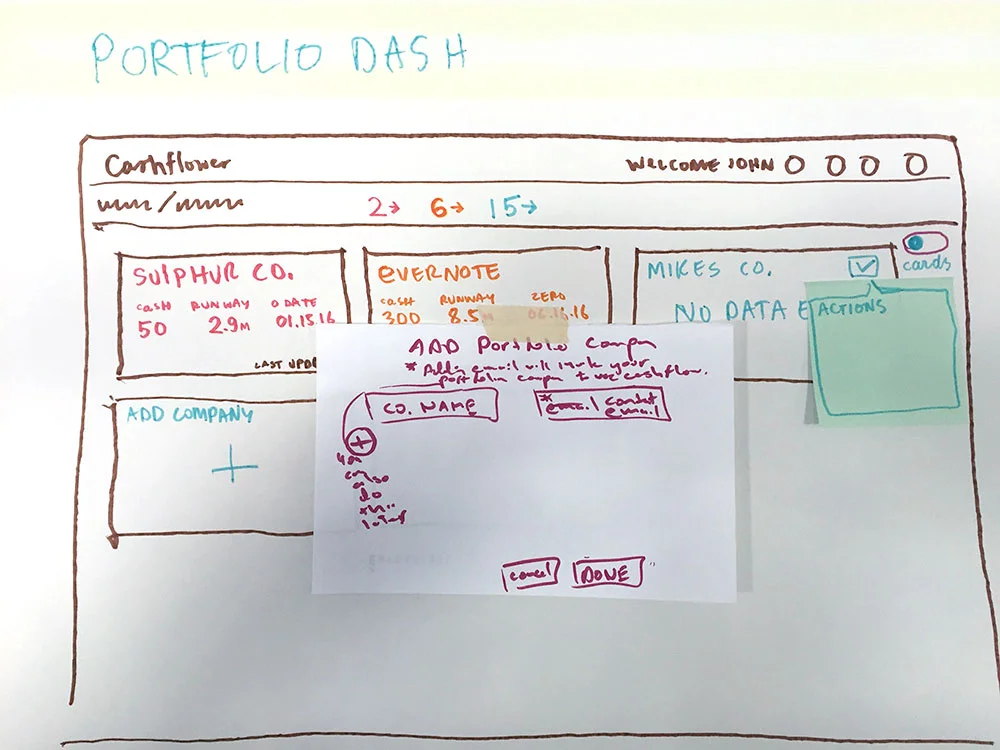 PORTFOLIO DASH
Cashflower
WELCOME JOHN
2→ 6→ 15→
SULPHUR CO.
CASH RUNWAY 0 DATE
50 2.9M 01.15.16
LAST UPD
EVERNOTE
CASH RUNWAY ZERO
300 8.5M 06.15.16
MIKES CO.
NO DATA E
cards
ACTIONS
ADD COMPANY
+
ADD Portfolio Compn
* Adding email will invite your
portfolio compn to use cashflow.
CO. NAME
*
email contact
email
+
you
can also
do
this
later
cancel
DONE